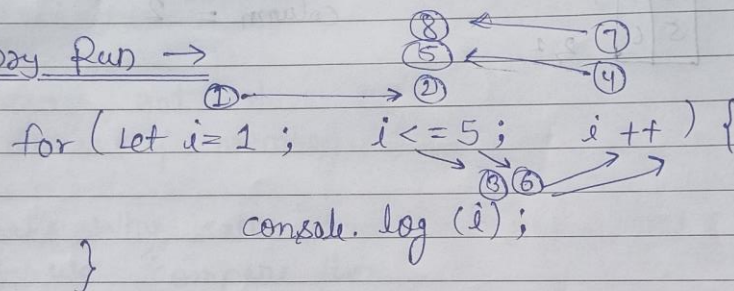 Run →
⑧ ⑦
⑤ ④
① ②
for ( Let i = 1 ; i <= 5 ; i ++ ) {
③ ⑥
console. log (i) ;
}